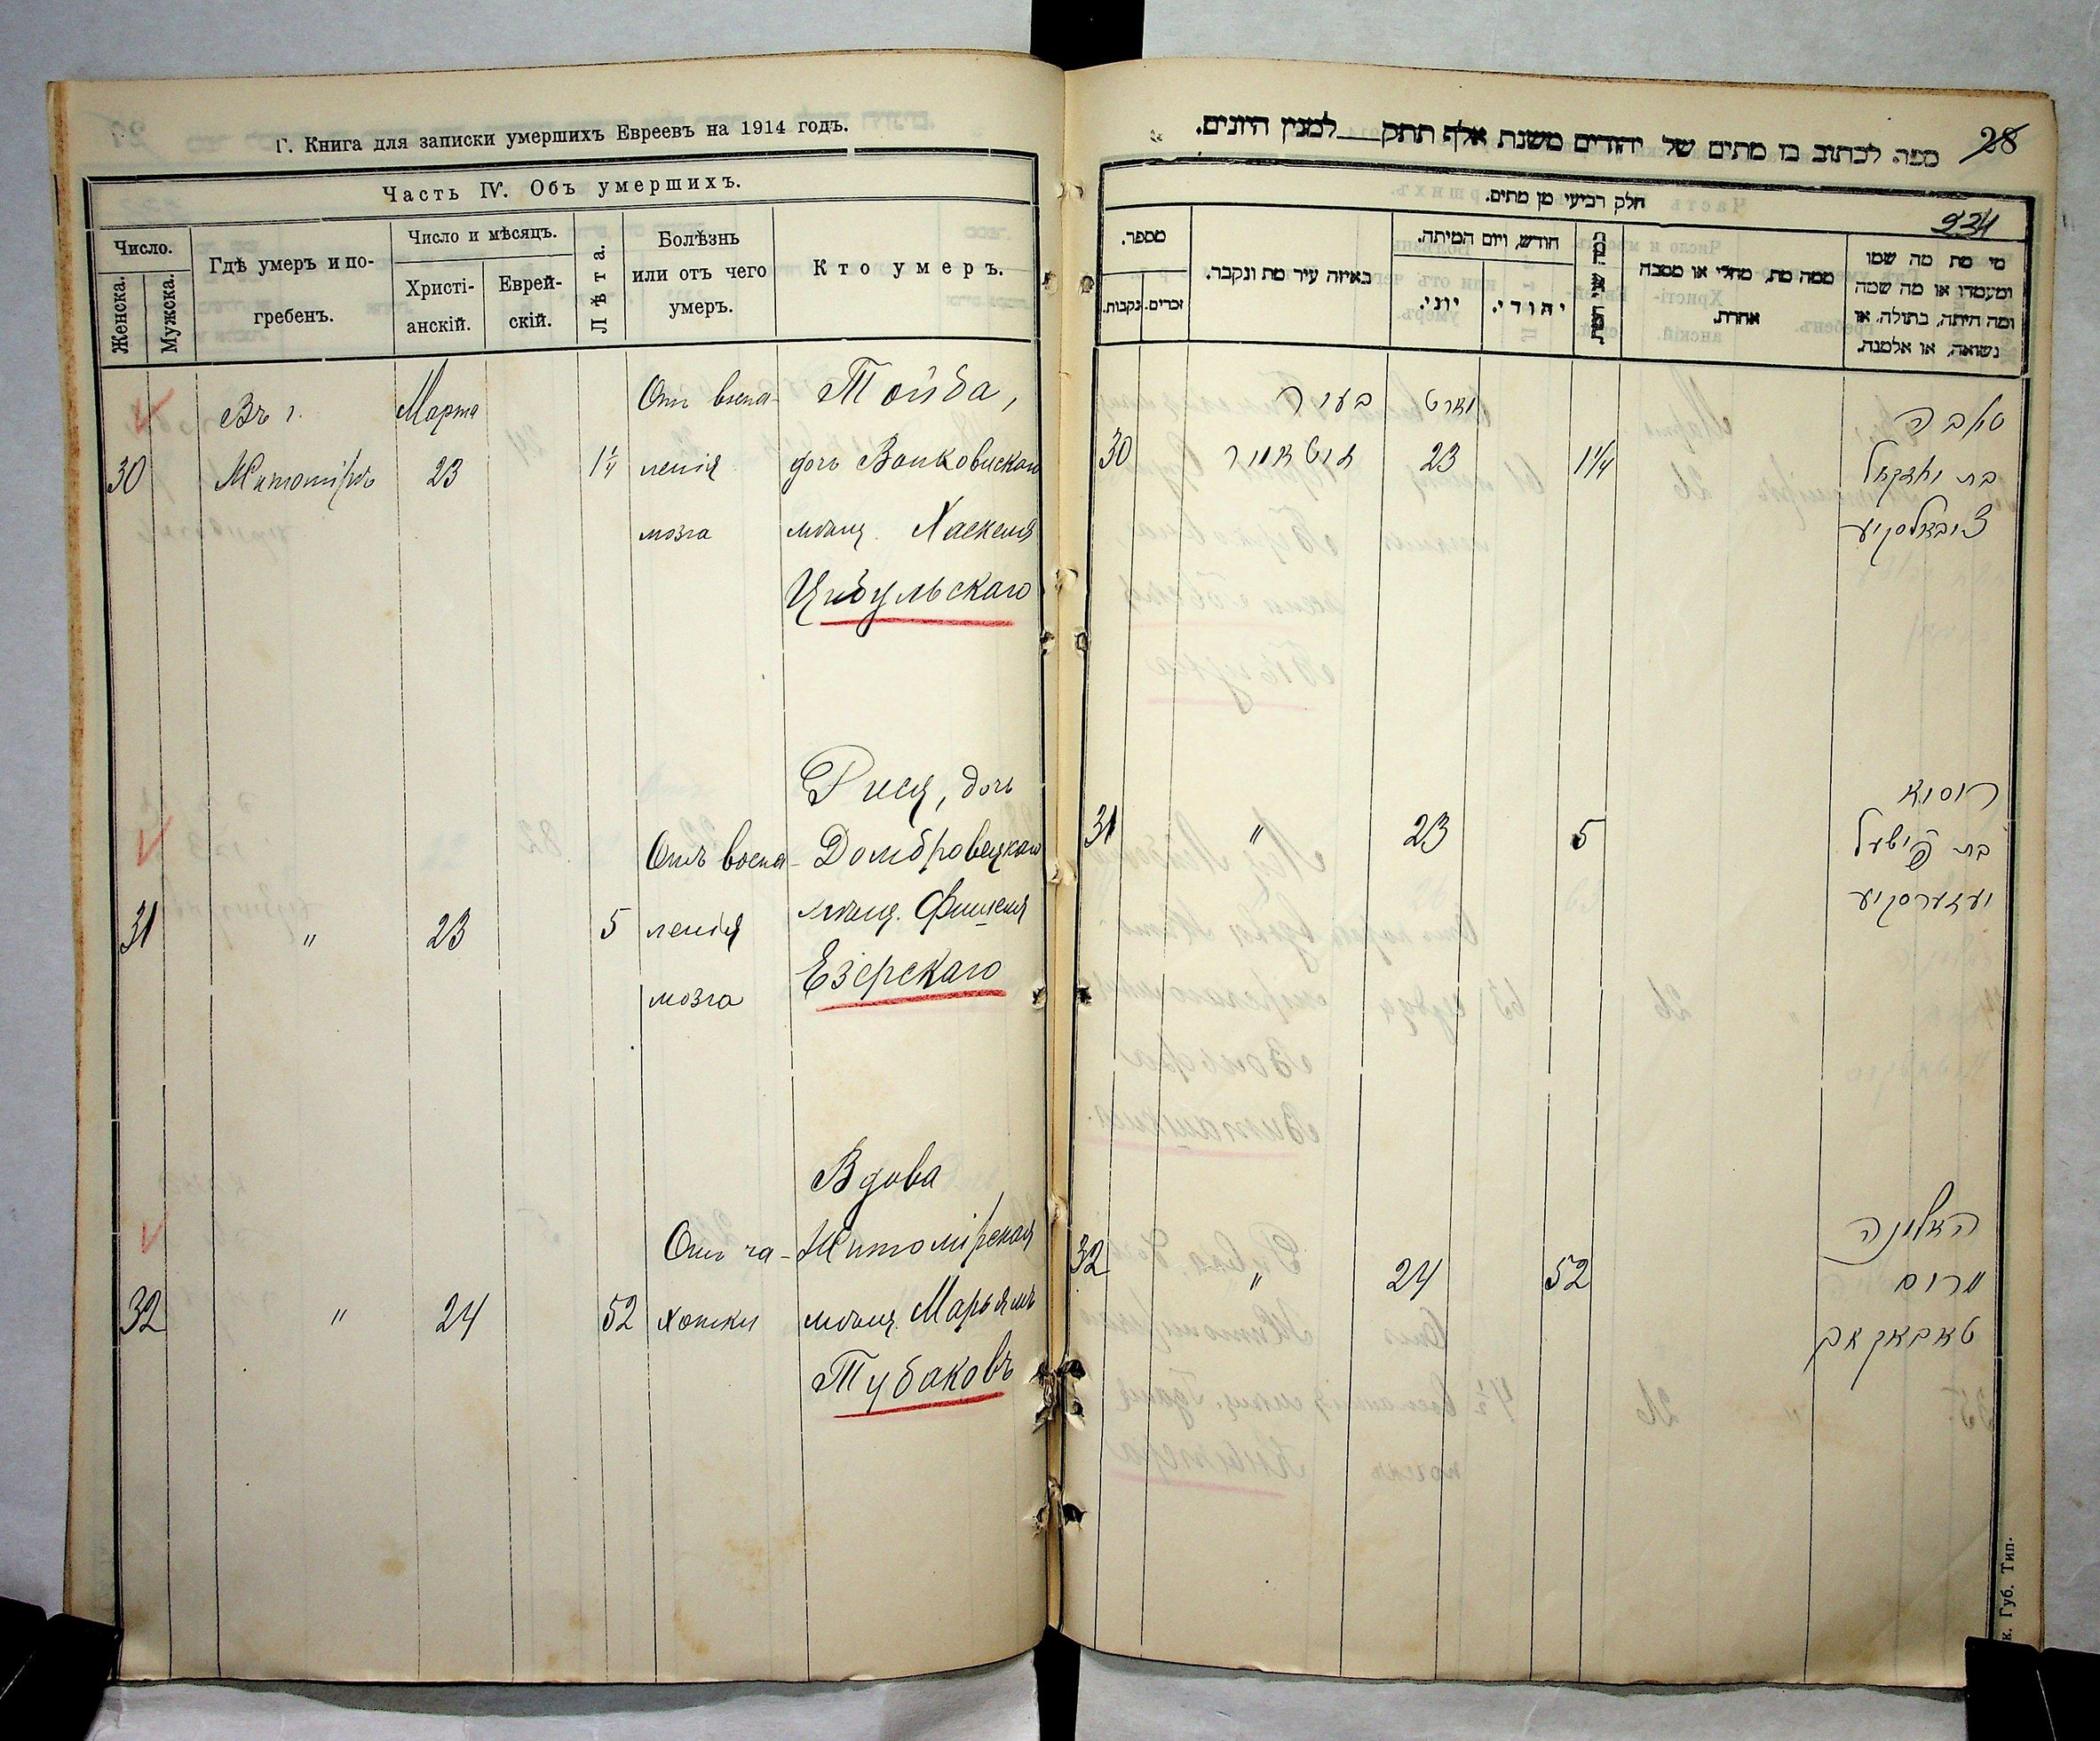 Г. Книга для записки умершихъ Евреевъ на 1914 годъ.
Часть IV. Объ умершихъ.
Число.
Женска.
Мужска.
Гдѣ умеръ и по-
гребенъ.
Число и мѣсяцъ.
Христі-
анскій.
Еврей-
скій.
Лѣта.
Болѣзнь
или отъ чего
умеръ.
Кто умеръ.
30
Въ г.
Житомірѣ
Марта
23
1¼
Отъ воспа-
ленія
мозга
Тойба,
дочь Волковискаго
мѣщ. Хаскеля
Цибульскаго
31
"
23
5
Отъ воспа-
ленія
мозга
Рися, дочь
Домбровецкаго
мѣщ. Фишеля
Езерскаго
32
"
24
52
Отъ ча-
хотки
Вдова
Житомірская
мѣщ. Марьямъ
Тубаковъ
28
ספר לכתוב בו מתים של יהודים משנת אלף תתק למנין היונים.
934
חלק רביעי מן מתים.
מספר.
נקבות.
זכרים.
באיזה עיר מת ונקבר.
חודש, ויום המיתה.
יוני.
יהודי.
ממה מת, מחלי או מסבה
אחרת.
מי מת מה שמו
ומעמדו או מה שמה
ומה היתה, בתולה, או
נשואה, או אלמנה.
30
בעיר
זיטאמיר
מארט
23
1¼
טובה
בת יחזקאל
ציבולסקיע
31
"
23
5
ריסיא
בת פישעל
יעזערסקיע
32
"
24
52
האלמנה
מרים
טאבאקאב
к. Губ. Тип.